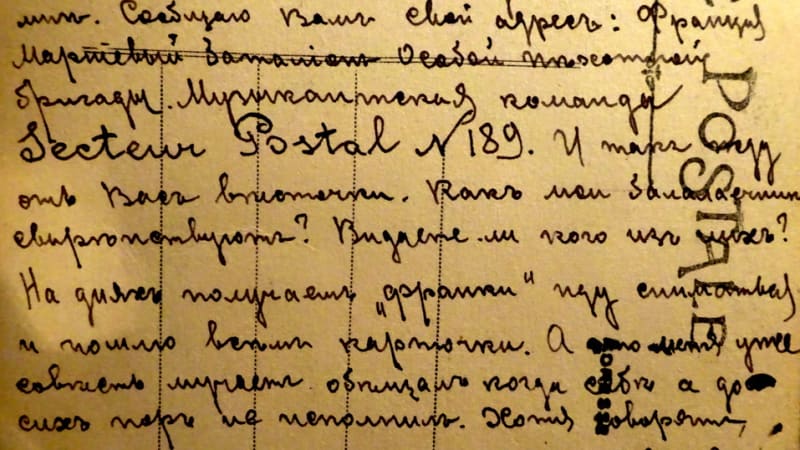 мнѣ. Сообщаю Вамъ свой адресъ: Франція
Маршевый баталіонъ Особой пѣхотной
бригады. Музыкантская команда
Secteur Postal N 189. И такъ жду
отъ Васъ вѣсточки. Какъ мои балалаечники
свирѣпствуютъ? Видаете-ли кого изъ нихъ?
На дняхъ получаемъ „франки“ иду сниматься
и пошлю всѣмъ карточки. А то меня уже
совѣсть мучаетъ обѣщалъ когда себѣ а до
сихъ поръ не исполнилъ. Хотя говорятъ,
POSTALE